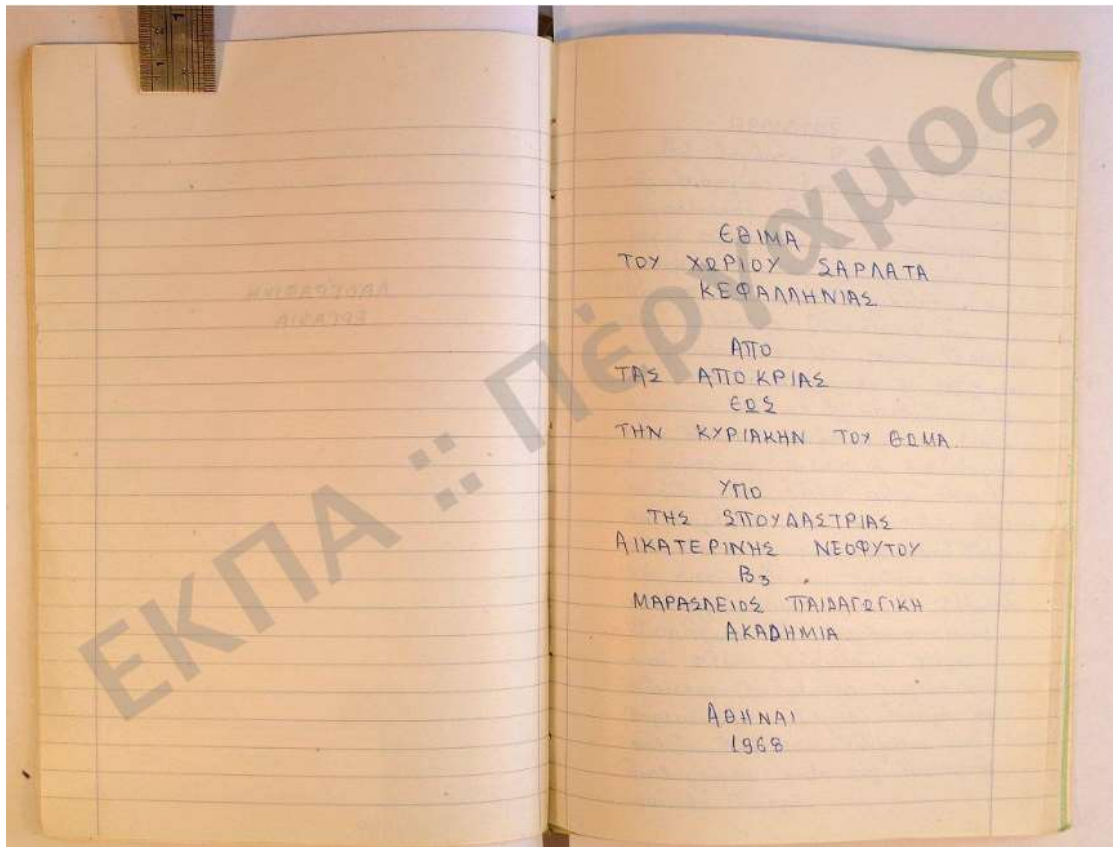 ΛΑΟΓΡΑΦΙΚΗ
ΕΡΓΑΣΙΑ
ΕΘΙΜΑ
ΤΟΥ ΧΩΡΙΟΥ ΣΑΡΛΑΤΑ
ΚΕΦΑΛΛΗΝΙΑΣ
ΑΠΟ
ΤΑΣ ΑΠΟΚΡΙΑΣ
ΕΩΣ
ΤΗΝ ΚΥΡΙΑΚΗΝ ΤΟΥ ΘΩΜΑ
ΥΠΟ
ΤΗΣ ΣΠΟΥΔΑΣΤΡΙΑΣ
ΑΙΚΑΤΕΡΙΝΗΣ ΝΕΟΦΥΤΟΥ
Β3
ΜΑΡΑΣΛΕΙΟΣ ΠΑΙΔΑΓΩΓΙΚΗ
ΑΚΑΔΗΜΙΑ
ΑΘΗΝΑΙ
1968
ΕΚΠΑ :: Πέργαμος